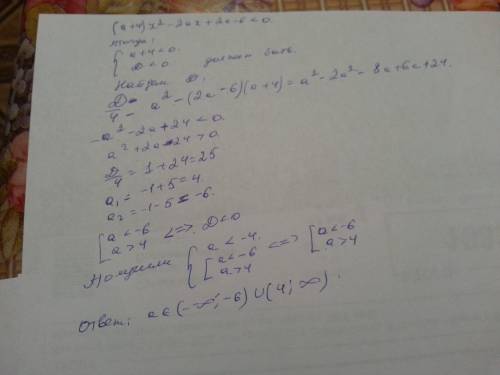 (a+4)x² - 2ax + 2a-6 < 0.
тогда:
{ a+4<0.
D<0 должно быть.
Найдём D:
D/4 = a² - (2a-6)(a+4) = a² - 2a² - 8a+6a+24.
-a² - 2a+24 < 0.
a² + 2a-24 > 0.
D/4 = 1+24=25
a₁ = -1+5=4.
a₂ = -1-5=-6.
[ a < -6
a > 4 <=> D<0
Но при { a < -4.
[ a<-6
a>4 <=> [ a<-6
a>4
Ответ: a∈(-∞; -6) ∪ (4; ∞).